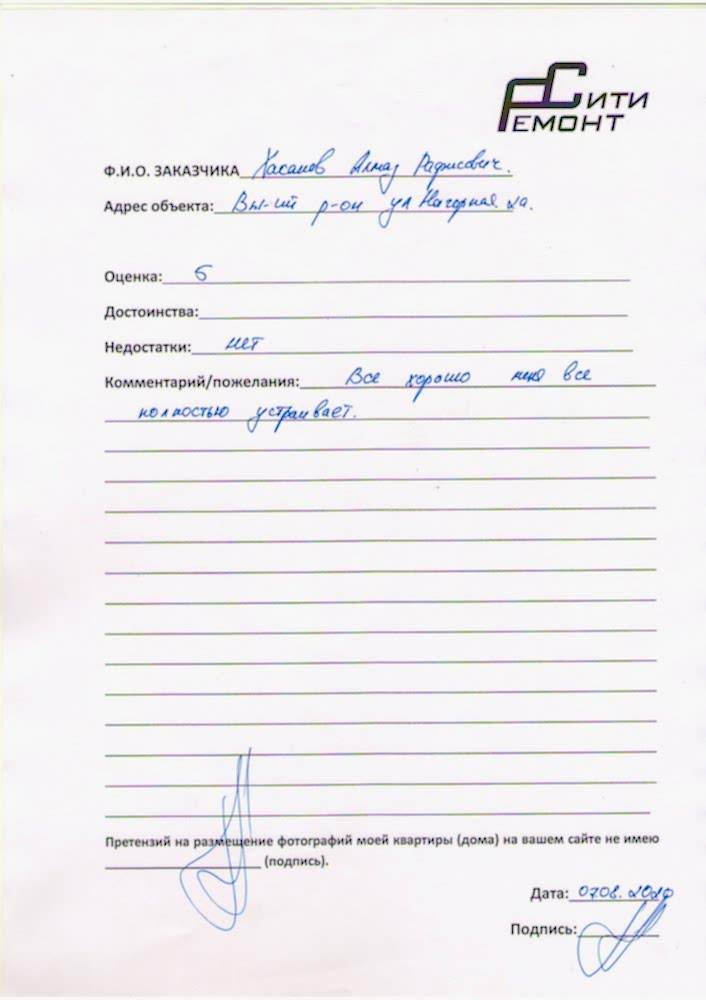 Сити
Ремонт
Ф.И.О. ЗАКАЗЧИКА Хасанов Алмаз Рафисович.
Адрес объекта: Вы-ий р-он ул Нагорная 2а.
Оценка: 5
Достоинства:
Недостатки: нет
Комментарий/пожелания: Все хорошо меня все
полностью устраивает.
Претензий на размещение фотографий моей квартиры (дома) на вашем сайте не имею
(подпись).
Дата: 07.08.2020
Подпись: